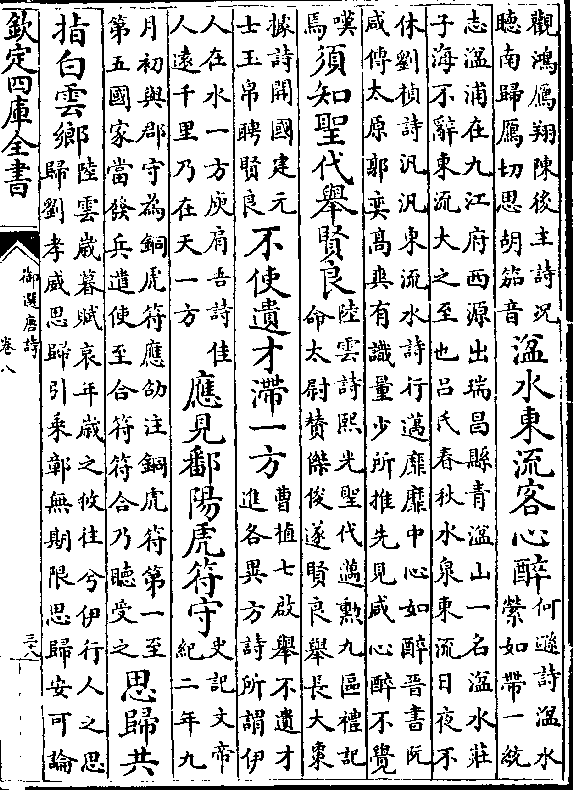 觀鴻鴈翔陳後主詩況
聴南歸鴈切思胡笳音
湓水東流客心醉
何遜詩湓水
縈如帶一統
志湓浦在九江府西源出瑞昌縣青湓山一名湓水莊
子海不辭東流大之至也吕氏春秋水泉東流日夜不
休劉楨詩汎汎東流水詩行邁靡靡中心如醉晉書阮
咸傳太原郭奕高爽有識量少所推先見咸心醉不覺
嘆
焉
須知聖代舉賢良
陸雲詩熙光聖代邁勲九區禮記
命太尉賛傑俊遂賢良舉長大橐
據詩開國建元
士玉帛聘賢良
不使遺才滯一方
曹植七啟舉不遺才
進各異方詩所謂伊
人在水一方庾肩吾詩佳
人逺千里乃在天一方
應見鄱陽虎符守
史記文帝
紀二年九
月初與郡守為銅虎符應劭注銅虎符第一至
第五國家當發兵遣使至合符符合乃聽受之
思歸共
指白雲鄉
陸雲歲暮賦哀年歲之攸往兮伊行人之思
歸劉孝威思歸引乘鄣無期限思歸安可論
欽定四庫全書
御選唐詩
卷八
三十八